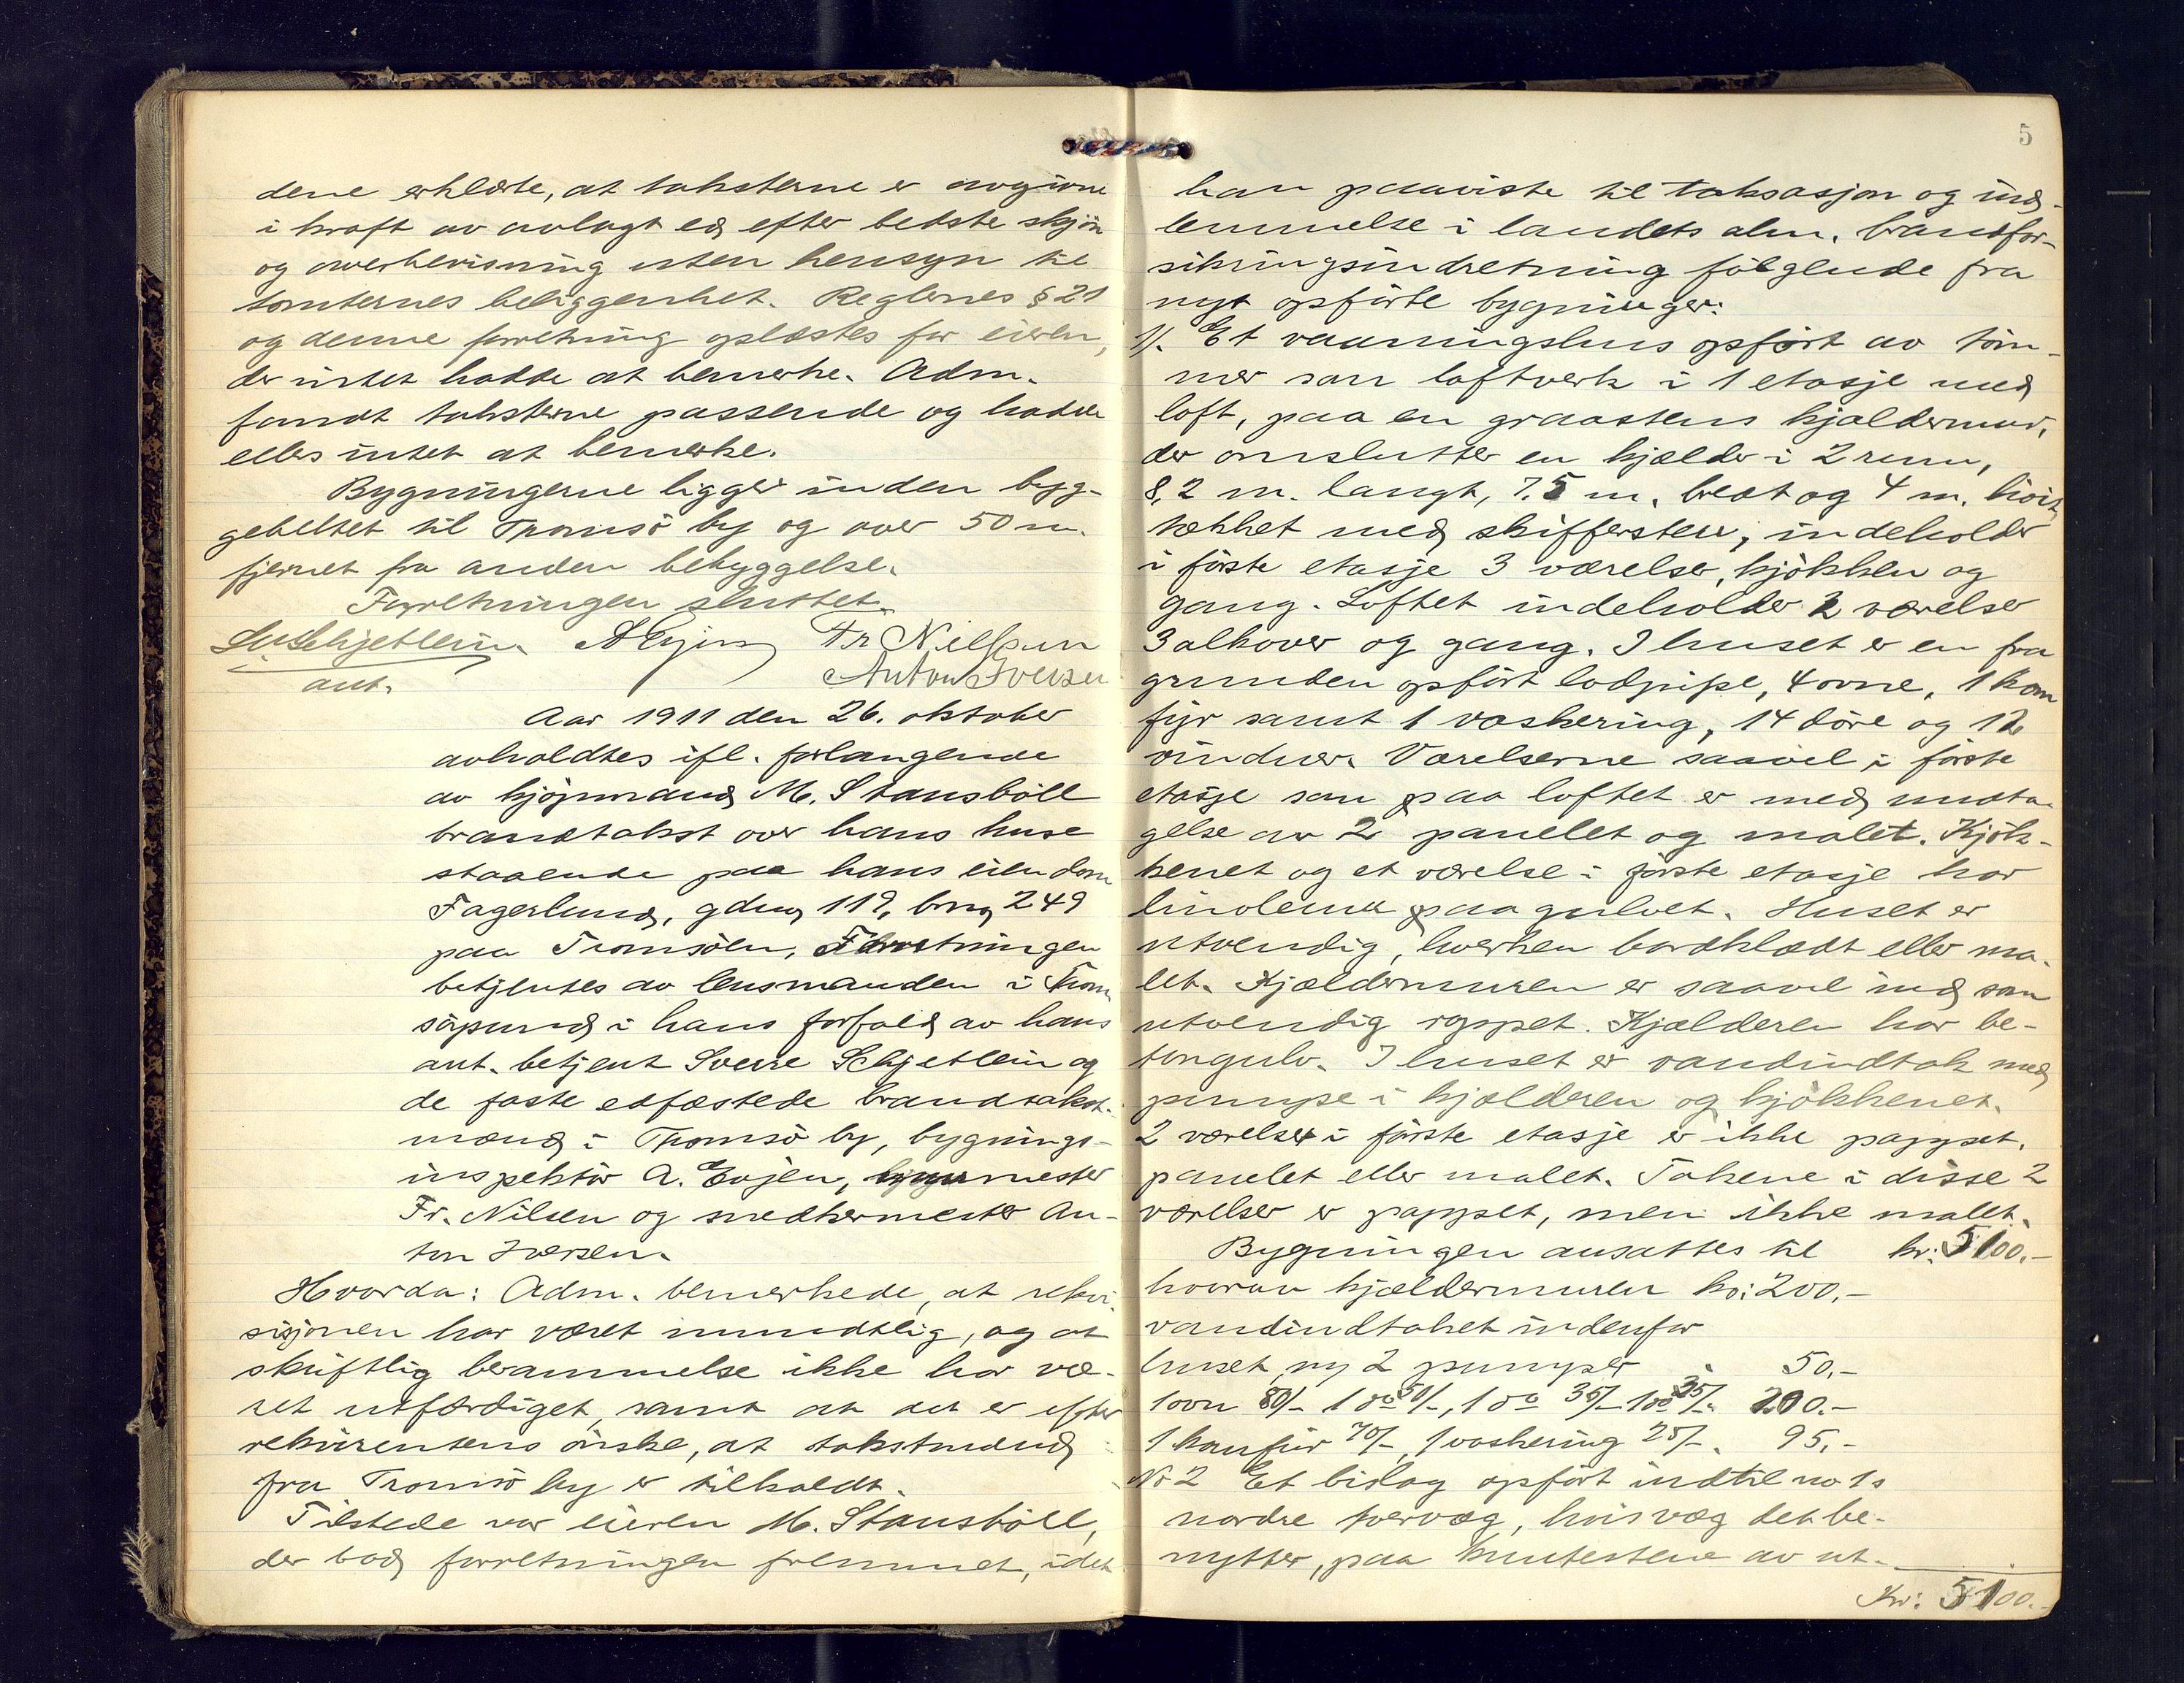 dene erklærte, at taksterne er avgivne
i kraft av avlagt ed efter bedste skjön
og overbevisning uten hensyn til
tomternes beliggenhet. Reglernes § 21
og denne forretning oplæstes for eieren,
der intet hadde at bemerke. Adm.
fandt taksterne passende og hadde
ellers intet at bemerke.
Bygningerne ligger inden byg-
gebeltet til Tromsö by og over 50 m.
fjernet fra anden bebyggelse.
Forretningen sluttet.
S. Schjetlein. A Evjen Fr Nilssen
aut. Anton Iversen
Aar 1911 den 26. oktober
avholdtes ifl. forlangende
av kjöpmand M. Stausböll
brandtakst over hans huse
staaende paa hans eiendom
Fagerlund, gdno 119, brno 249
paa Tromsöen, Forretningen
betjentes av lensmanden i Trom
söysund i hans forfald av hans
aut. betjent Sverre Schjetlein og
de faste edfæstede brandtakst-
mænd i Tromsö by, bygnings-
inspektör A. Evjen, byggmester
Fr. Nilsen og snedkermester An-
ton Iversen.
Hvorda: Adm. bemerkede, at rekvi-
sisjonen har været mundtlig, og at
skriftlig berammelse ikke har væ-
ret utfærdiget, samt at det er efter
rekvirentens önske, at takstmænd
fra Tromsö by er tilkaldt.
Tilstede var eieren M. Stausböll,
der bad forretningen fremmet, idet
5
han paaviste til taksasjon og ind-
lemmelse i landets alm. brandfor-
sikringsindretning fölgende fra
nyt opförte bygninger:
1/. Et vaaningshus opfört av töm-
mer som loftverk i 1 etasje med
loft, paa en graastens kjældermur,
der omslutter en kjælder i 2 rum,
8,2 m. langt, 7.5 m. bredt og 4 m. höit,
tækket med skiffersten; indeholder
i förste etasje 3 værelser, kjökken og
gang. Loftet indeholder 2 værelser
3 alkover og gang. I huset er en fra
grunden opfört lodpipe, 4 ovne, 1 kom
fyr samt 1 vaskering, 14 döre og 12
vinduer. Værelserne saavel i förste
etasje som paa loftet er med undta-
gelse av 2 panelet og malet. Kjök-
kenet og et værelse i förste etasje har
linoleum paa gulvet. Huset er
utvendig, hverken bordklædt eller ma-
let. Kjældermuren er saavel ind som
utvendig rappet. Kjælderen har be-
tongulv. I huset er vandindtak med
pumpe i kjælderen og kjökkenet.
2 værelser i förste etasje er ikke pappet.
panelet eller malet. Takene i disse 2
værelser er pappet, men ikke malet.
Bygningen ansattes til kr: 5100.-
hvorav kjældermuren kr: 200.-
vandindtaket indenfor
huset, m/ 2 pumper " 50.-
1 ovn 80/- 1 do 50/-, 1 do 35/- 1 do 35/- 200.-
1 komfür 70/-, 1 vaskering 25/-. 95.-
No 2 Et bislag opfört indtil no 1s
nordre tvervæg, hvis væg det be-
nytter, paa murstene av ut-
Kr: 5100.-